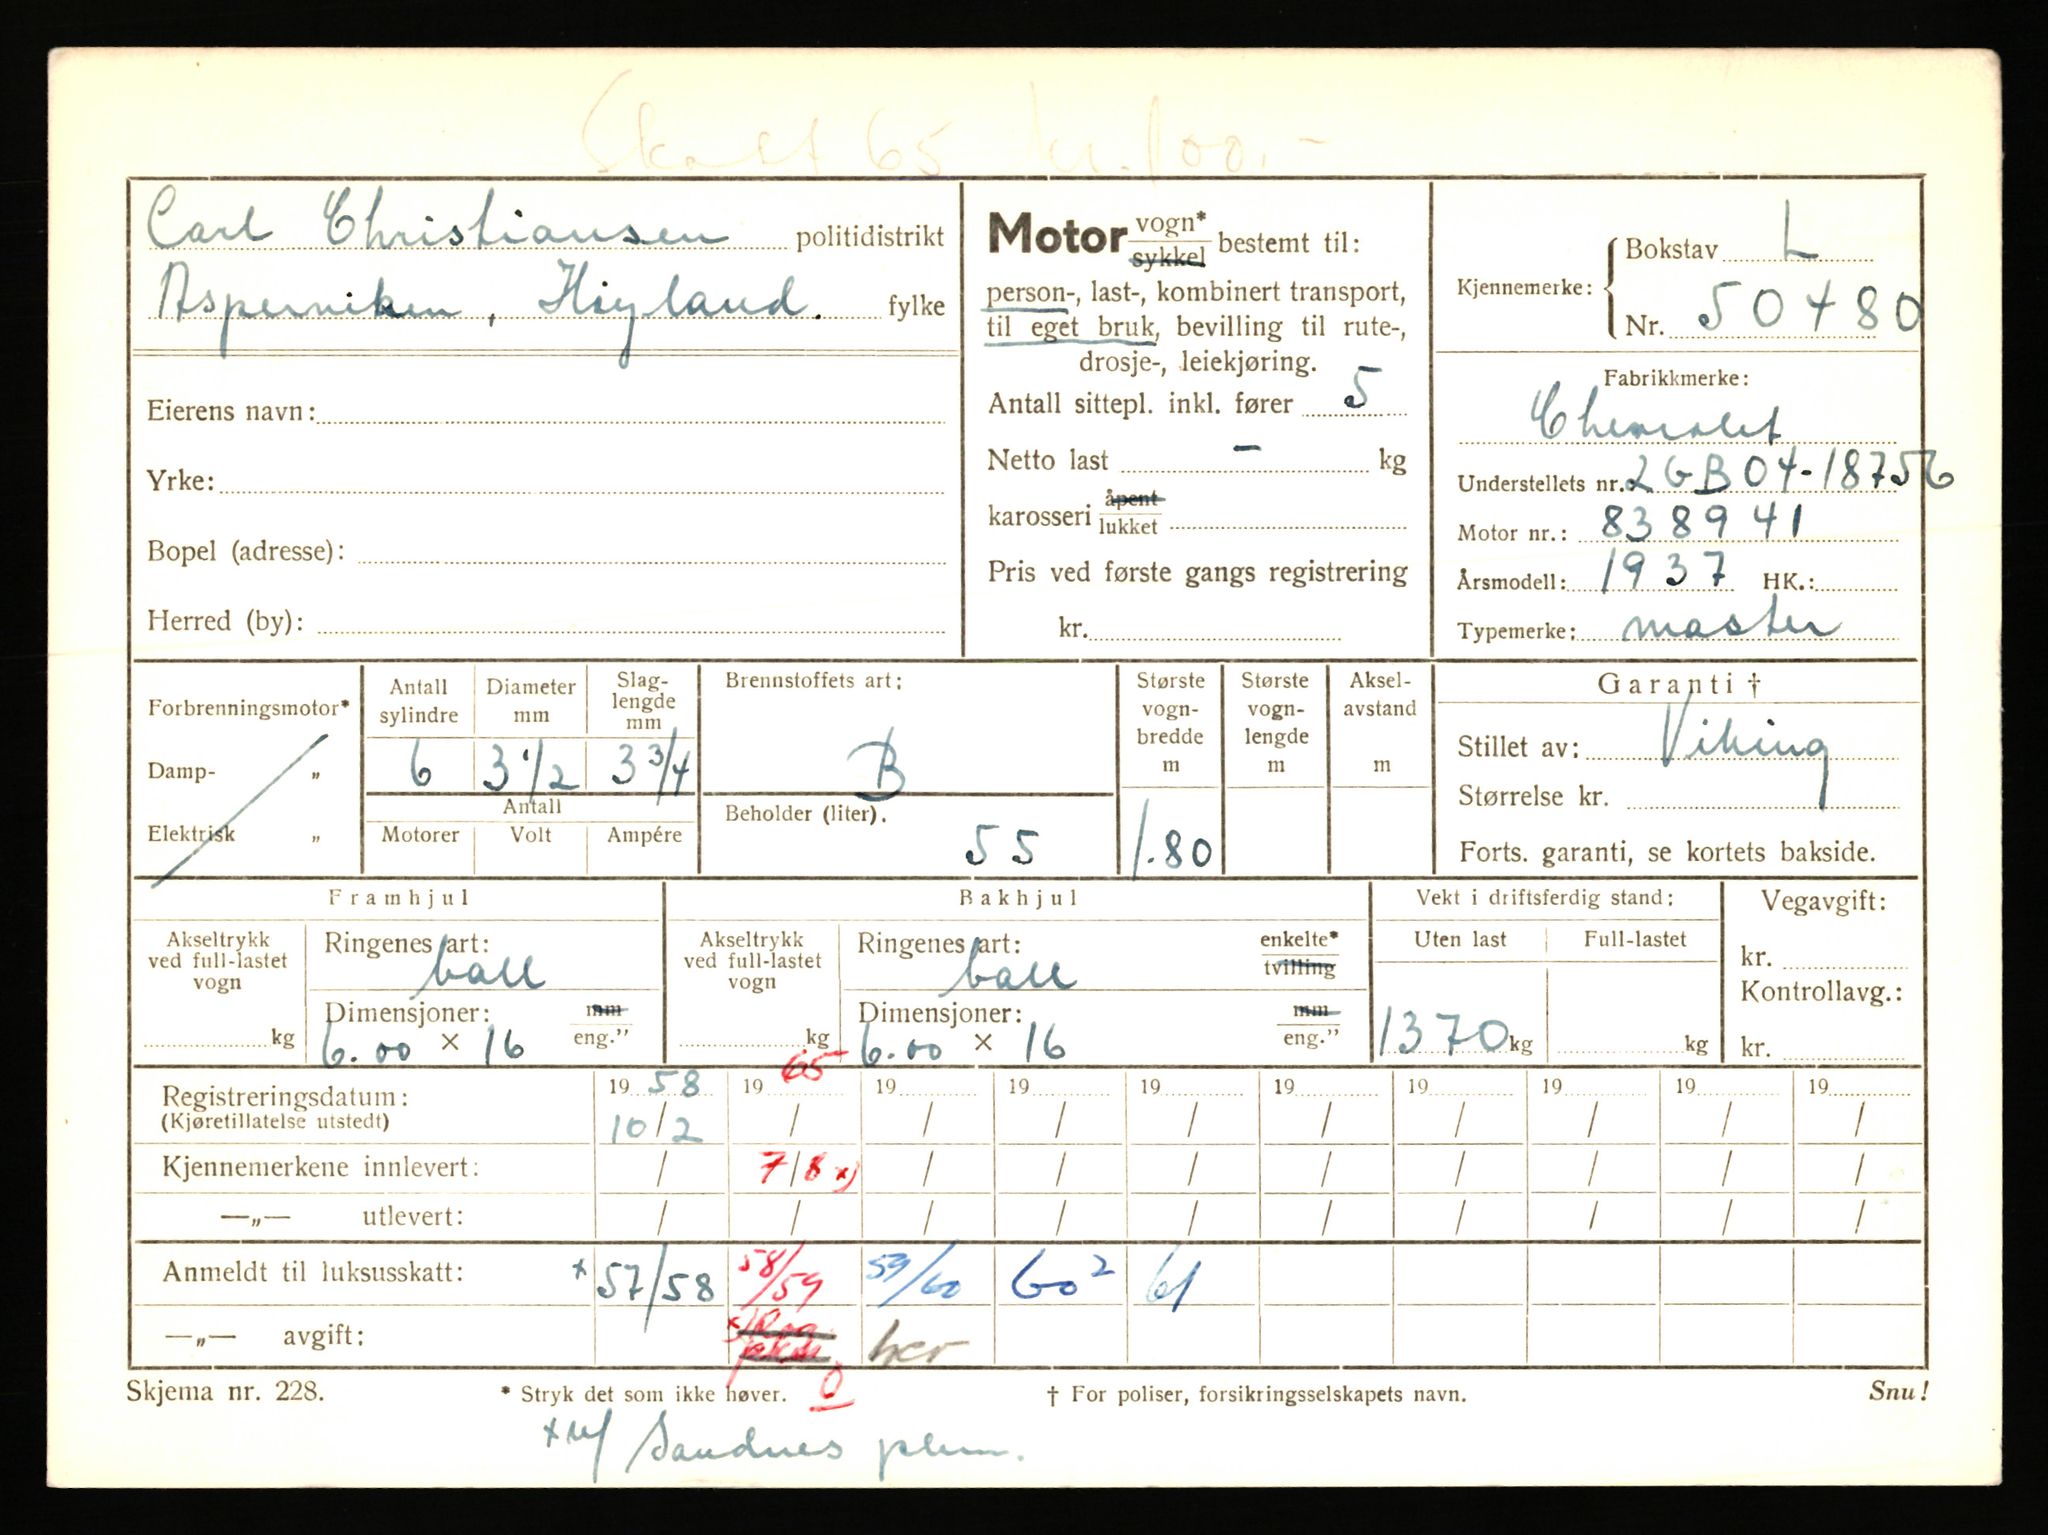 Skatt 65 kr. 100.-
Carl Christiansen politidistrikt
Asperviken, Høyland. fylke
Eierens navn:
Yrke:
Bopel (adresse):
Herred (by):
Motor vogn* sykkel bestemt til:
person-, last-, kombinert transport,
til eget bruk, bevilling til rute-,
drosje-, leiekjøring.
Antall sittepl. inkl. fører 5
Netto last - kg
karosseri åpent lukket
Pris ved første gangs registrering
kr.
Kjennemerke: Bokstav L
Nr. 50480
Fabrikkmerke:
Chevrolet
Understellets nr. 2GB04-18756
Motor nr.: 838941
Årsmodell: 1937 HK.:
Typemerke: master
Forbrenningsmotor*
Damp- „
Elektrisk „
Antall sylindre
Diameter mm
Slag-
lengde
mm
6 3 1/2 3 3/4
Antall
Motorer Volt Ampére
Brennstoffets art:
B
Beholder (liter).
55
Største
vogn-
bredde
m
1.80
Største
vogn-
lengde
m
Aksel-
avstand
m
Garanti †
Stillet av: Viking
Størrelse kr.
Forts. garanti, se kortets bakside.
Framhjul
Akseltrykk
ved full-lastet
vogn
kg
Ringenes art:
ball
Dimensjoner: mm
6.00 × 16 eng.”
Bakhjul
Akseltrykk
ved full-lastet
vogn
kg
Ringenes art: enkelte*
ball tvilling
Dimensjoner: mm
6.00 × 16 eng.”
Vekt i driftsferdig stand:
Uten last Full-lastet
1370 kg kg
Vegavgift:
kr.
Kontrollavg.:
kr.
Registreringsdatum: 19 58 19 65 19 19 19 19 19 19 19 19
(Kjøretillatelse utstedt) 10/2 / / / / / / / / /
Kjennemerkene innlevert: / 7/8 x) / / / / / / / /
—„— utlevert: / / / / / / / / / /
Anmeldt til luksusskatt: x 57/58 58/59 59/60 60² 61
—„— avgift: x)
0
Skjema nr. 228. * Stryk det som ikke høver. † For poliser, forsikringsselskapets navn. Snu!
Sandnes